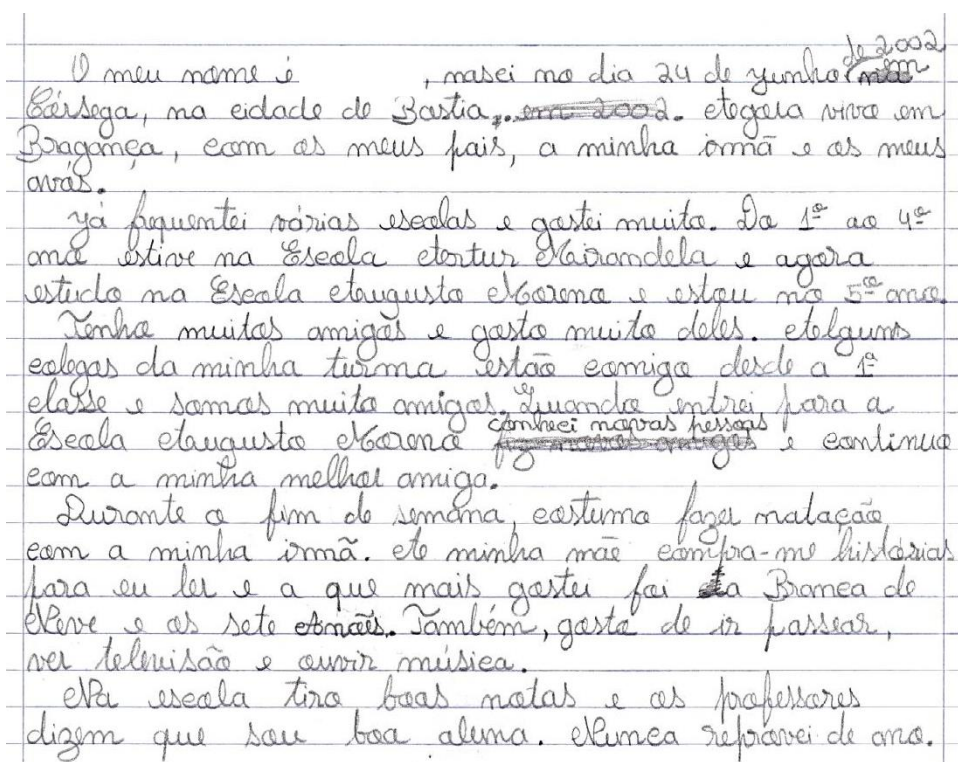 de 2002
O meu nome é , nasci no dia 24 de junho em
Córsega, na cidade de Bastia, em 2002. Agora vivo em
Bragança, com os meus pais, a minha irmã e os meus
avós.
Já frequentei várias escolas e gostei muito. Do 1º ao 4º
ano estive na Escola Artur Mirandela e agora
estudo na Escola Augusto Moreno e estou no 5º ano.
Tenho muitos amigos e gosto muito deles. Alguns
colegas da minha turma estão comigo desde a 1ª
classe e somos muito amigos. Quando entrei para a
conheci novas pessoas
Escola Augusto Moreno fiz novos amigos e continuo
com a minha melhor amiga.
Durante o fim de semana, costumo fazer natação
com a minha irmã. A minha mãe compra-me histórias
para eu ler e a que mais gostei foi a Branca de
Neve e os sete Anões. Também, gosto de ir passear,
ver televisão e ouvir música.
Na escola tiro boas notas e os professores
dizem que sou boa aluna. Nunca reprovei de ano.